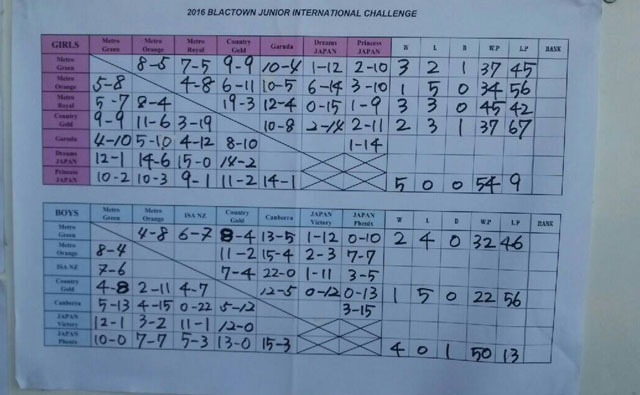 2016 BLACTOWN JUNIOR INTERNATIONAL CHALLENGE
GIRLS Metro Green Metro Orange Metro Royal Country Gold Garuda Dreams JAPAN Princess JAPAN W L D W.P L.P RANK
Metro Green 8-5 7-5 9-9 10-4 1-12 2-10 3 2 1 37 45
Metro Orange 5-8 4-8 6-11 10-5 6-14 3-10 1 5 0 34 56
Metro Royal 5-7 8-4 19-3 12-4 0-15 1-9 3 3 0 45 42
Country Gold 9-9 11-6 3-19 10-8 2-14 2-11 2 3 1 37 67
Garuda 4-10 5-10 4-12 8-10 1-14
Dreams JAPAN 12-1 14-6 15-0 14-2
Princess JAPAN 10-2 10-3 9-1 11-2 14-1 5 0 0 54 9
BOYS Metro Green Metro Orange ISA NZ Country Gold Canberra JAPAN Victory JAPAN Phenix W L D W.P L.P RANK
Metro Green 4-8 6-7 8-4 13-5 1-12 0-10 2 4 0 32 46
Metro Orange 8-4 11-2 15-4 2-3 7-7
ISA NZ 7-6 7-4 22-0 1-11 3-5
Country Gold 4-8 2-11 4-7 12-5 0-12 0-13 1 5 0 22 56
Canberra 5-13 4-15 0-22 5-12 3-15
JAPAN Victory 12-1 3-2 11-1 12-0
JAPAN Phenix 10-0 7-7 5-3 13-0 15-3 4 0 1 50 13